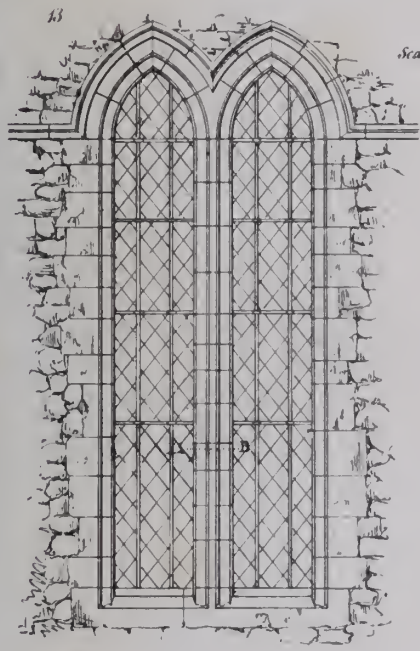 13
Sca
A B